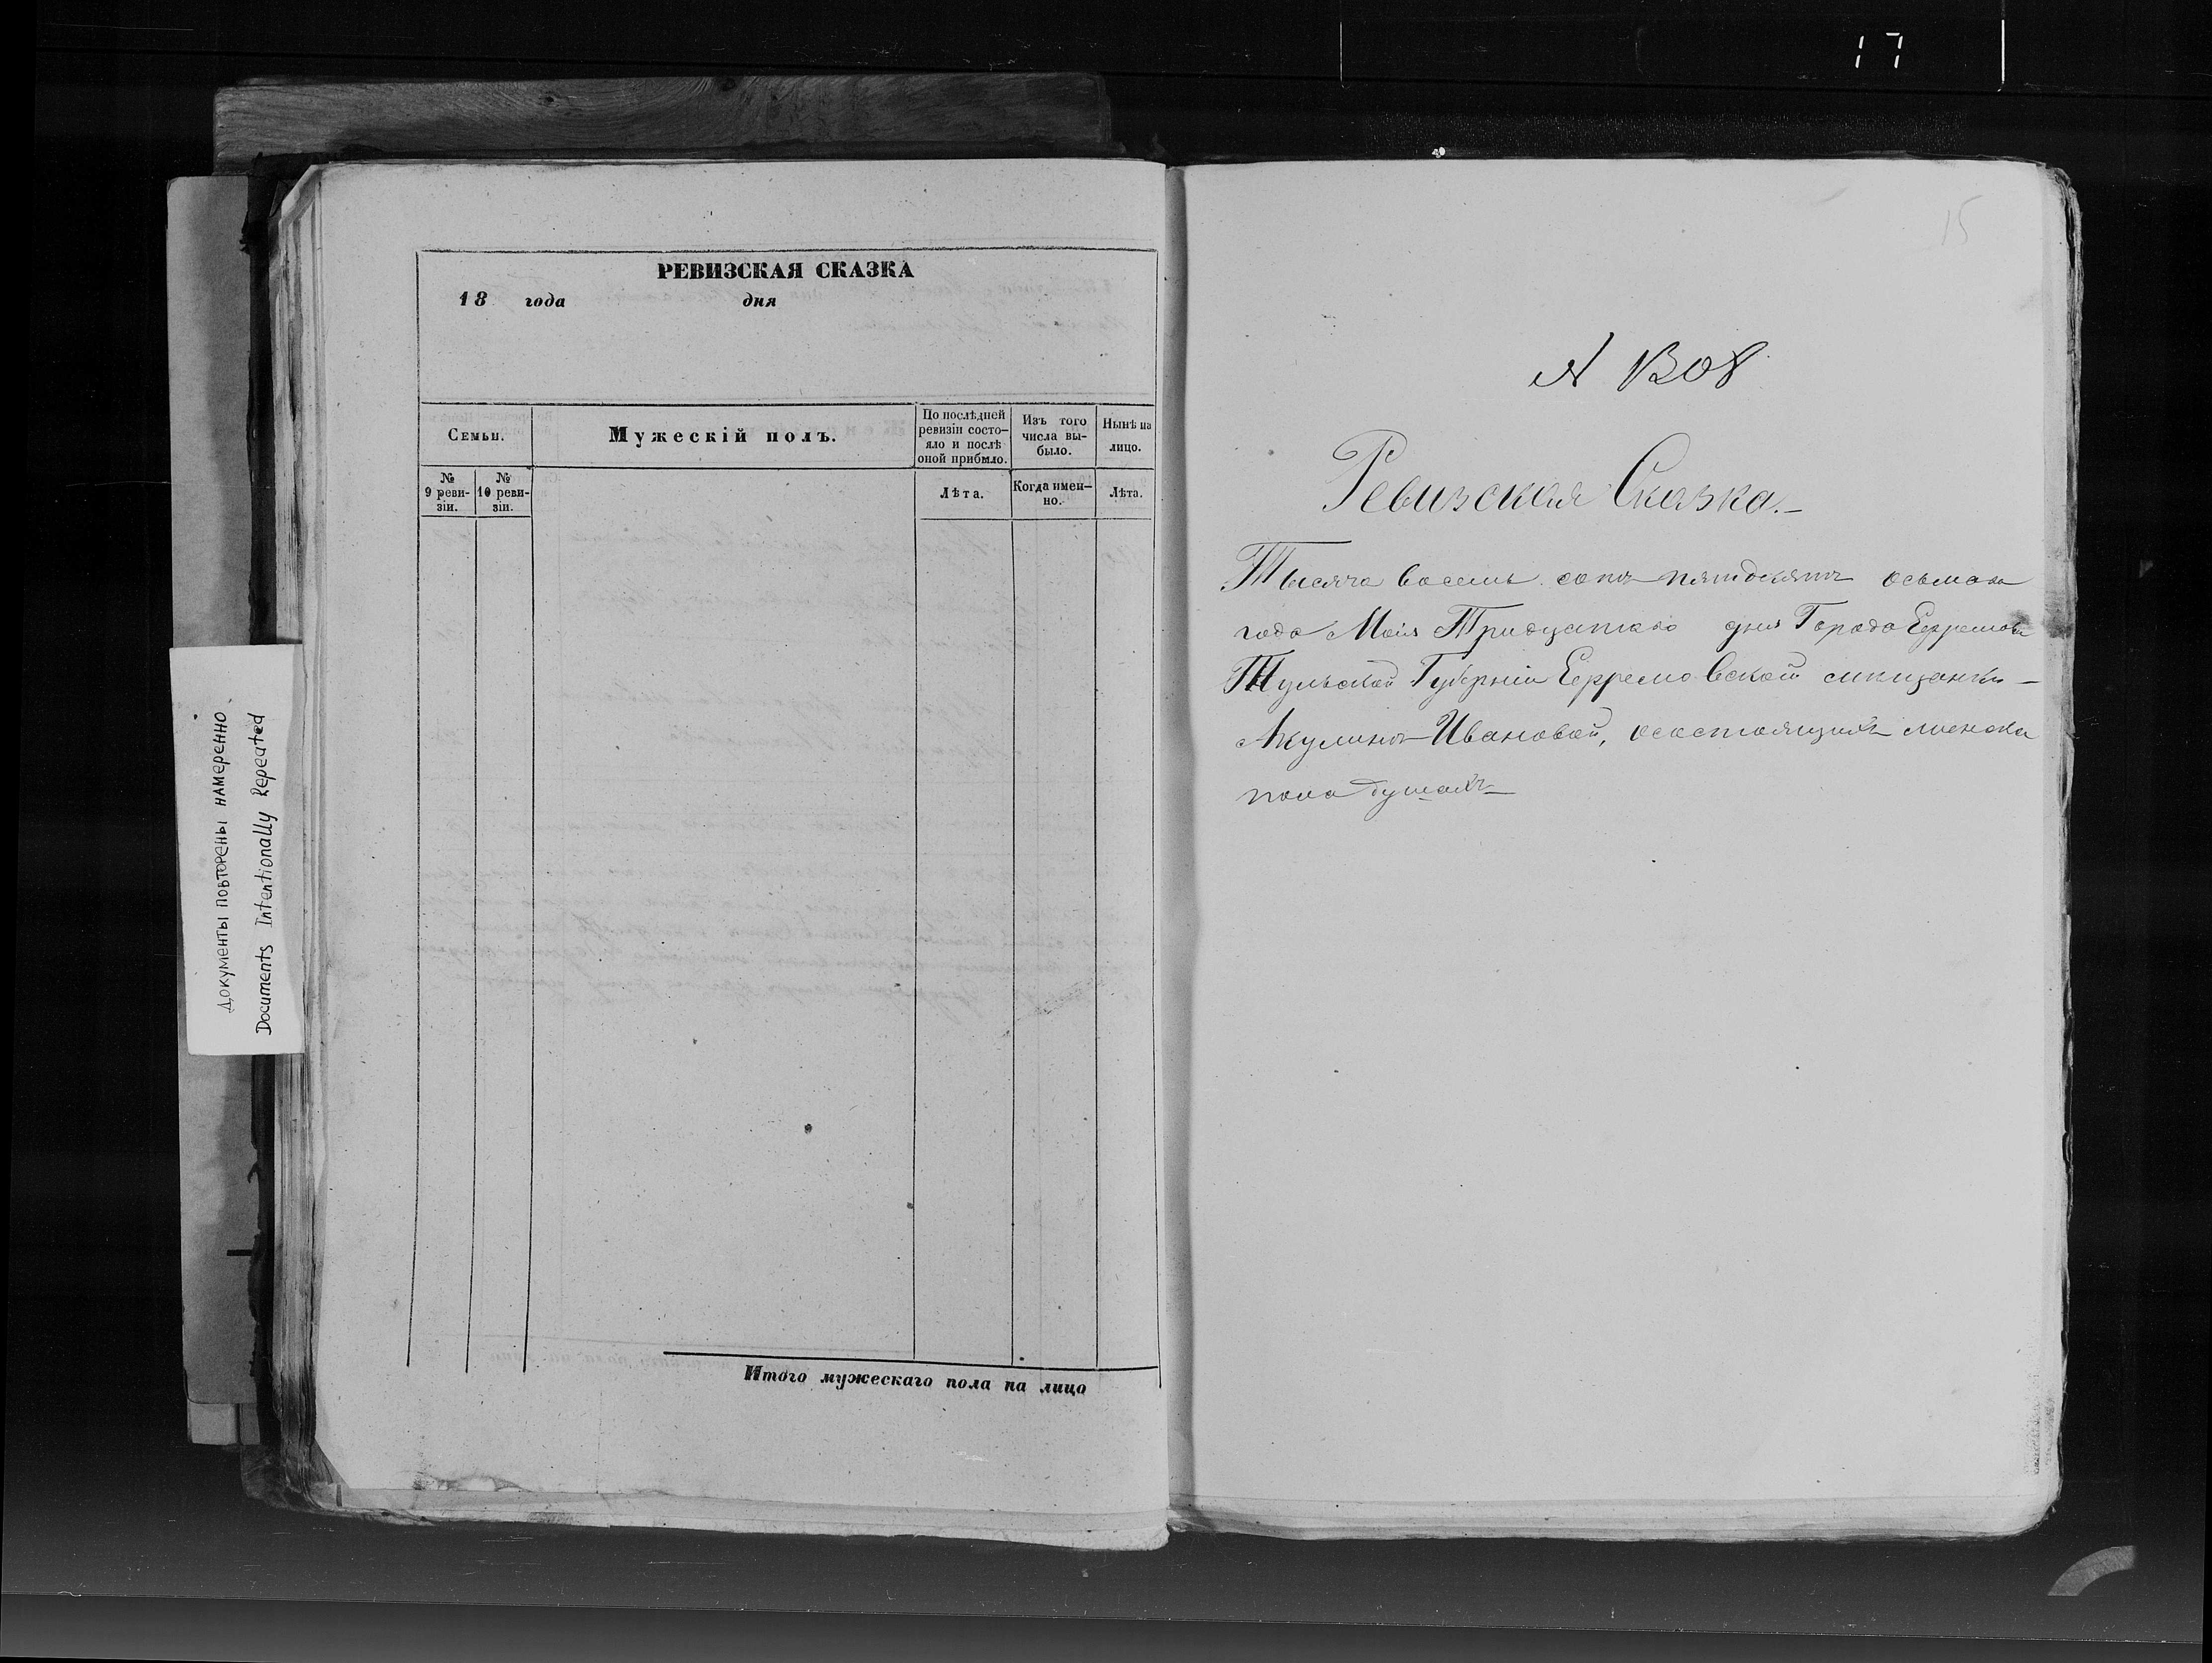 17
15
РЕВИЗСКАЯ СКАЗКА
18 года дня
Семьи.
Мужескій полъ.
По послѣдней ревизіи состо-
яло и послѣ
оной прибыло.
Изъ того
числа вы-
было.
Нынѣ на
лицо.
№ 9 реви-
зіи.
№ 10 реви-
зіи.
Лѣта.
Когда имен-
но.
Лѣта.
Итого мужескаго пола на лицо
Документы повторены намеренно
Documents Intentionally Repeated
Ревизская Сказка.
Тысяча восемь сотъ пятдесятъ осьмаго
года Маія Тридцатаго дня Города Ефремова
Тульской Губерніи Ефремовской мѣщанки
Акулины Ивановой, осостоящихъ женска
пола душахъ